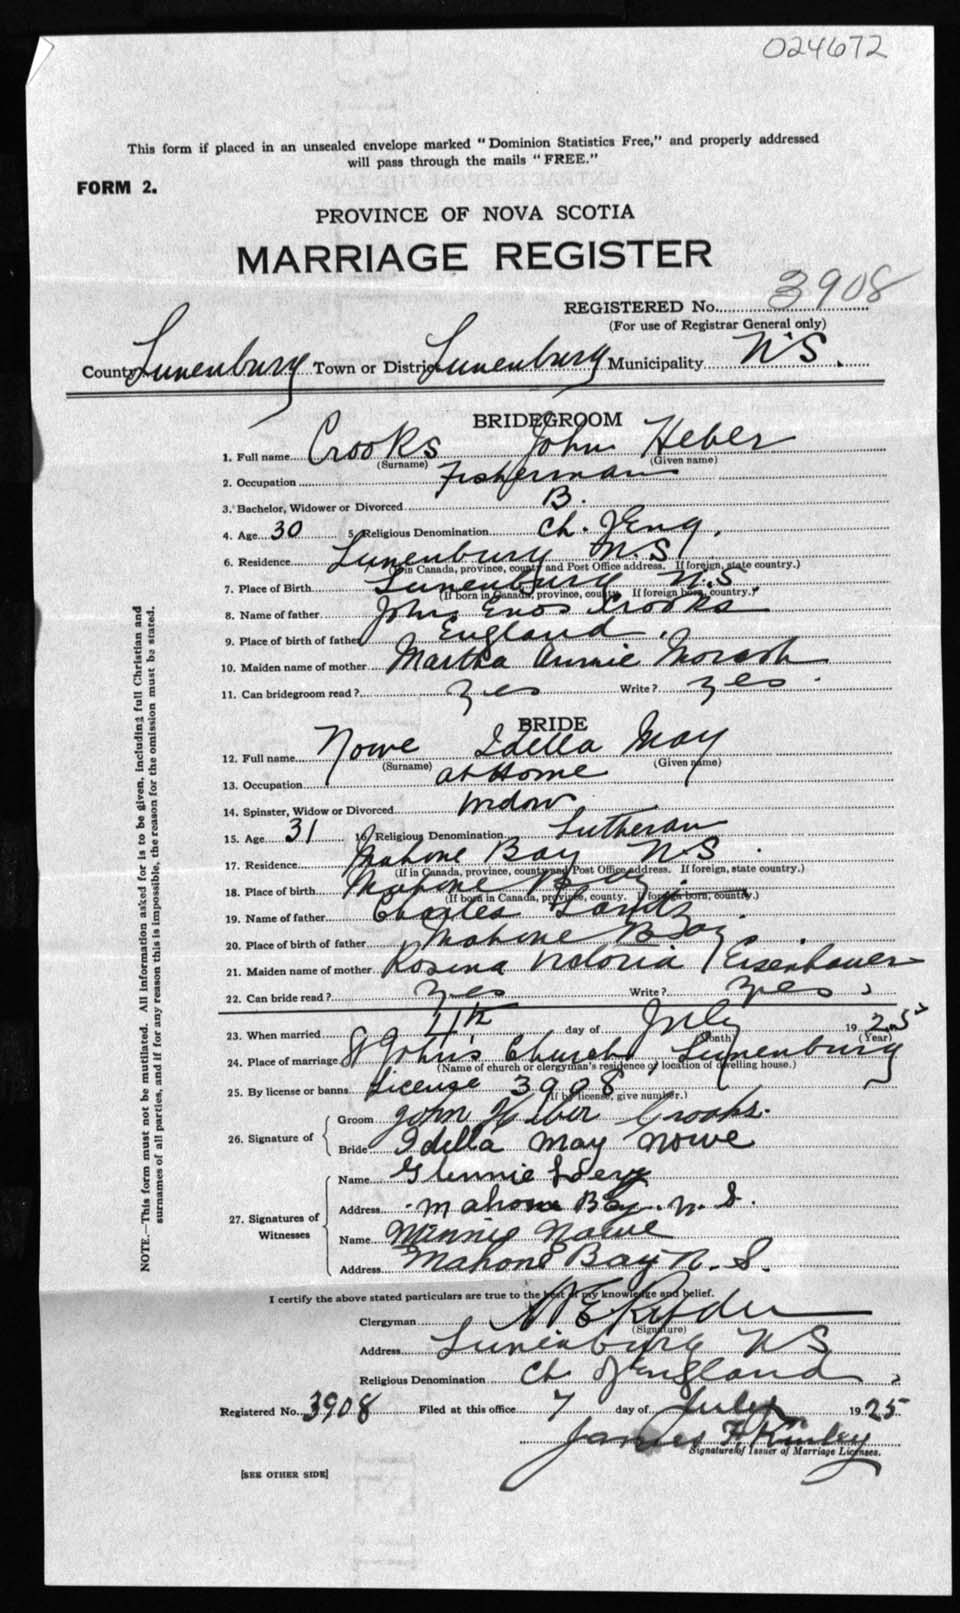 024672
This form if placed in an unsealed envelope marked "Dominion Statistics Free," and properly addressed
will pass through the mails "FREE."
FORM 2.
PROVINCE OF NOVA SCOTIA
MARRIAGE REGISTER
REGISTERED No. 3908
(For use of Registrar General only)
County Lunenburg Town or District Lunenburg Municipality N.S.
BRIDEGROOM
1. Full name Crooks John Heber
(Surname) (Given name)
2. Occupation Fisherman
3. Bachelor, Widower or Divorced B.
4. Age 30 5. Religious Denomination Ch. of Eng.
6. Residence Lunenburg N.S.
(If in Canada, province, county and Post Office address. If foreign, state country.)
7. Place of Birth Lunenburg N.S.
(If born in Canada, province, county. If foreign born, country.)
8. Name of father John Enos Crooks
9. Place of birth of father England.
10. Maiden name of mother Martha Annie Morash
11. Can bridegroom read? yes Write? yes.
BRIDE
12. Full name Nowe Idella May
(Surname) (Given name)
13. Occupation at Home
14. Spinster, Widow or Divorced Widow
15. Age 31 16. Religious Denomination Lutheran
17. Residence Mahone Bay N.S.
(If in Canada, province, county and Post Office address. If foreign, state country.)
18. Place of birth Mahone Bay
(If born in Canada, province, county. If foreign born, country.)
19. Name of father Charles
20. Place of birth of father Mahone Bay.
21. Maiden name of mother Rosena Victoria Eisenhauer
22. Can bride read? yes Write? yes.
23. When married 4th day of July 1925
(Month) (Year)
24. Place of marriage St John's Church, Lunenburg
(Name of church or clergyman's residence or location of dwelling house.)
25. By license or banns License 3908
(If by license, give number.)
26. Signature of Groom John Heber Crooks.
Bride Idella May Nowe
27. Signatures of Witnesses
Name Glennie
Address Mahone Bay. N. S.
Name Minnie Nowe
Address Mahone Bay N. S.
I certify the above stated particulars are true to the best of my knowledge and belief.
Clergyman W E Ryder
(Signature)
Address Lunenburg N S
Religious Denomination Ch of England.
Registered No. 3908 Filed at this office 7 day of July 1925
James F. Kinley
Signature of Issuer of Marriage Licenses.
[SEE OTHER SIDE]
NOTE.—This form must not be mutilated. All information asked for is to be given, including full Christian and
surnames of all parties, and if for any reason this is impossible, the reason for the omission must be stated.